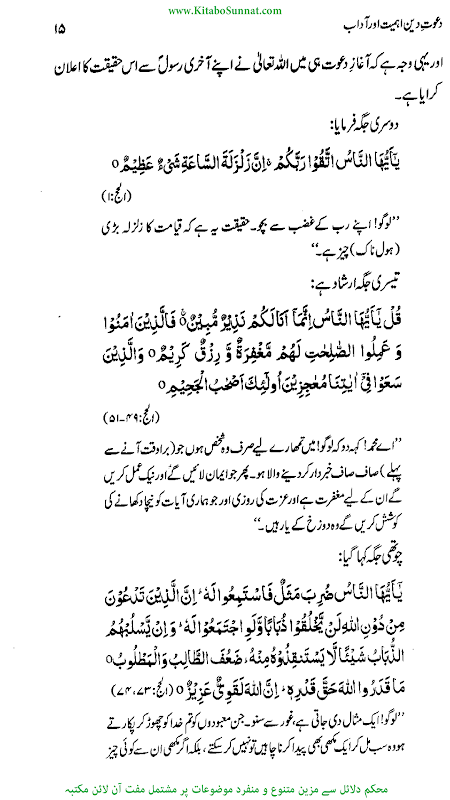 www.KitaboSunnat.com
دعوتِ دین اہمیت اور آداب ۱۵
اور یہی وجہ ہے کہ آغازِ دعوت ہی میں اللہ تعالیٰ نے اپنے آخری رسولؐ سے اس حقیقت کا اعلان
کرایا ہے۔
دوسری جگہ فرمایا:
یٰۤاَیُّهَا النَّاسُ اتَّقُوْا رَبَّكُمْ ۚ اِنَّ زَلْزَلَةَ السَّاعَةِ شَیْءٌ عَظِیْمٌ ۝
(الحج:۱)
’’لوگو! اپنے رب کے غضب سے بچو۔ حقیقت یہ ہے کہ قیامت کا زلزلہ بڑی
(ہول ناک) چیز ہے۔‘‘
تیسری جگہ ارشاد ہے:
قُلْ یٰۤاَیُّهَا النَّاسُ اِنَّمَاۤ اَنَا لَكُمْ نَذِیْرٌ مُّبِیْنٌ ۝ فَالَّذِیْنَ اٰمَنُوْا
وَ عَمِلُوا الصّٰلِحٰتِ لَهُمْ مَّغْفِرَةٌ وَّ رِزْقٌ كَرِیْمٌ ۝ وَالَّذِیْنَ
سَعَوْا فِیْۤ اٰیٰتِنَا مُعٰجِزِیْنَ اُولٰٓئِكَ اَصْحٰبُ الْجَحِیْمِ ۝
(الحج:۴۹-۵۱)
’’اے محمدؐ! کہہ دو کہ لوگو! میں تمھارے لیے صرف وہ شخص ہوں جو (برا وقت آنے سے
پہلے) صاف صاف خبردار کر دینے والا ہو۔ پھر جو ایمان لائیں گے اور نیک عمل کریں
گے ان کے لیے مغفرت ہے اور عزت کی روزی اور جو ہماری آیات کو نیچا دکھانے کی
کوشش کریں گے وہ دوزخ کے یار ہیں۔‘‘
چوتھی جگہ کہا گیا:
یٰۤاَیُّهَا النَّاسُ ضُرِبَ مَثَلٌ فَاسْتَمِعُوْا لَهٗ ؕ اِنَّ الَّذِیْنَ تَدْعُوْنَ
مِنْ دُوْنِ اللّٰهِ لَنْ یَّخْلُقُوْا ذُبَابًا وَّلَوِ اجْتَمَعُوْا لَهٗ ؕ وَ اِنْ یَّسْلُبْهُمُ
الذُّبَابُ شَیْئًا لَّا یَسْتَنْقِذُوْهُ مِنْهُ ؕ ضَعُفَ الطَّالِبُ وَالْمَطْلُوْبُ ۝
مَا قَدَرُوا اللّٰهَ حَقَّ قَدْرِهٖ ؕ اِنَّ اللّٰهَ لَقَوِیٌّ عَزِیْزٌ ۝ (الحج:۷۳، ۷۴)
’’لوگو! ایک مثال دی جاتی ہے، غور سے سنو۔ جن معبودوں کو تم خدا کو چھوڑ کر پکارتے
ہو وہ سب مل کر ایک مکھی بھی پیدا کرنا چاہیں تو نہیں کر سکتے، بلکہ اگر مکھی ان سے کوئی چیز
محکم دلائل سے مزین متنوع و منفرد موضوعات پر مشتمل مفت آن لائن مکتبہ